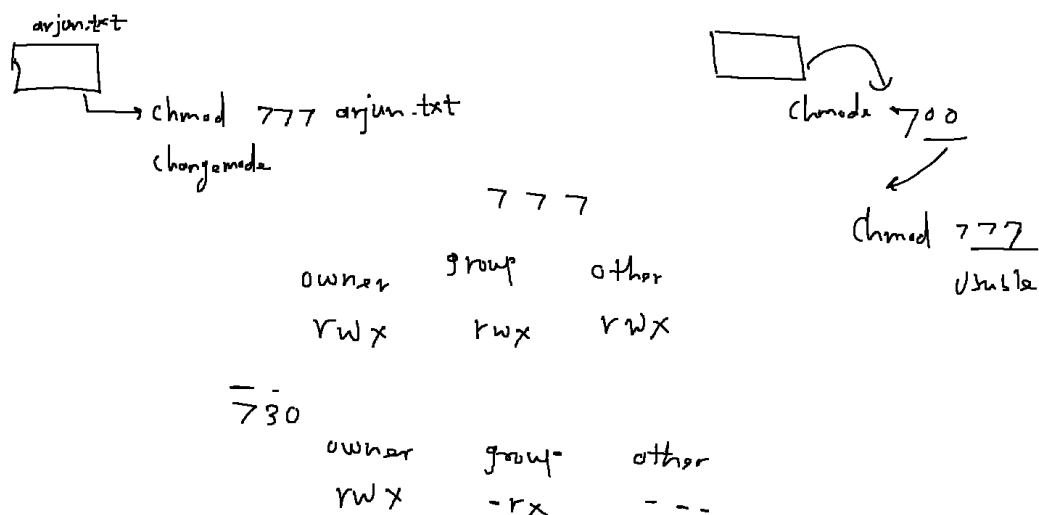 arjun.txt
chmod 777 arjun.txt
changemode
7 7 7
owner group other
rwx rwx rwx
730
owner group other
rwx -rx ---
Chmode 700
Chmod 777